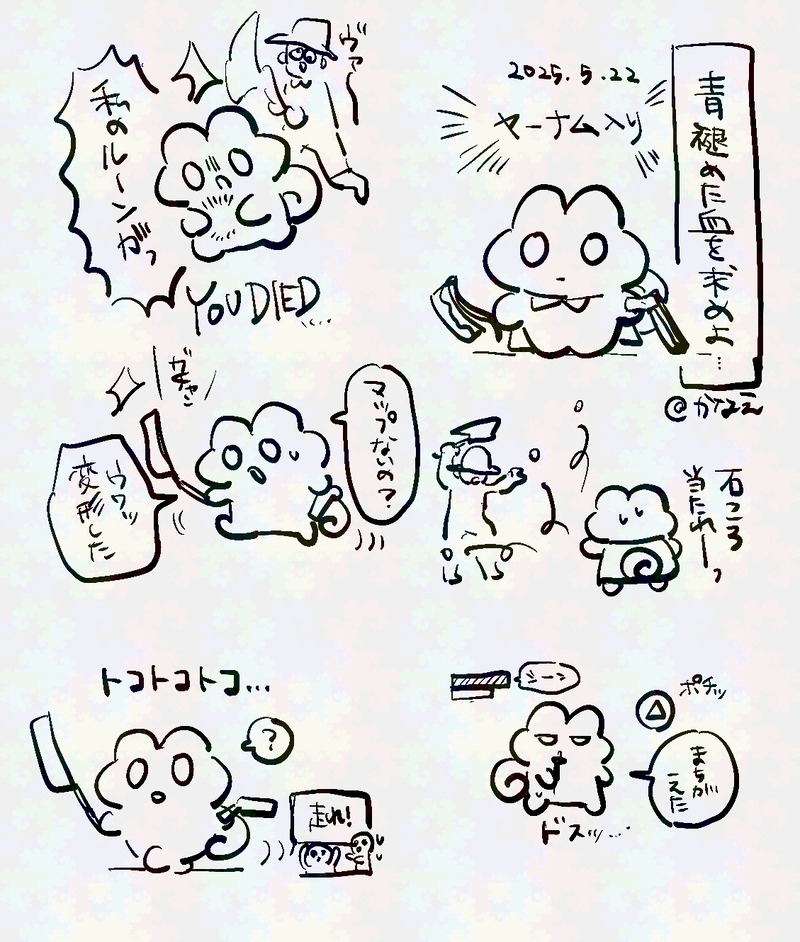 ヴァ゛
私のルーンがっ
YOU DIED...
2025.5.22
ヤーナム入り
青褪めた血を求めよ…
@かなえ
ガチャン
マップないの？
ウワッ
変形した
石ころ
当たれーっ
トコトコトコ...
?
走れ!
シーン
ポチッ
まちが
えた
ドスッ...